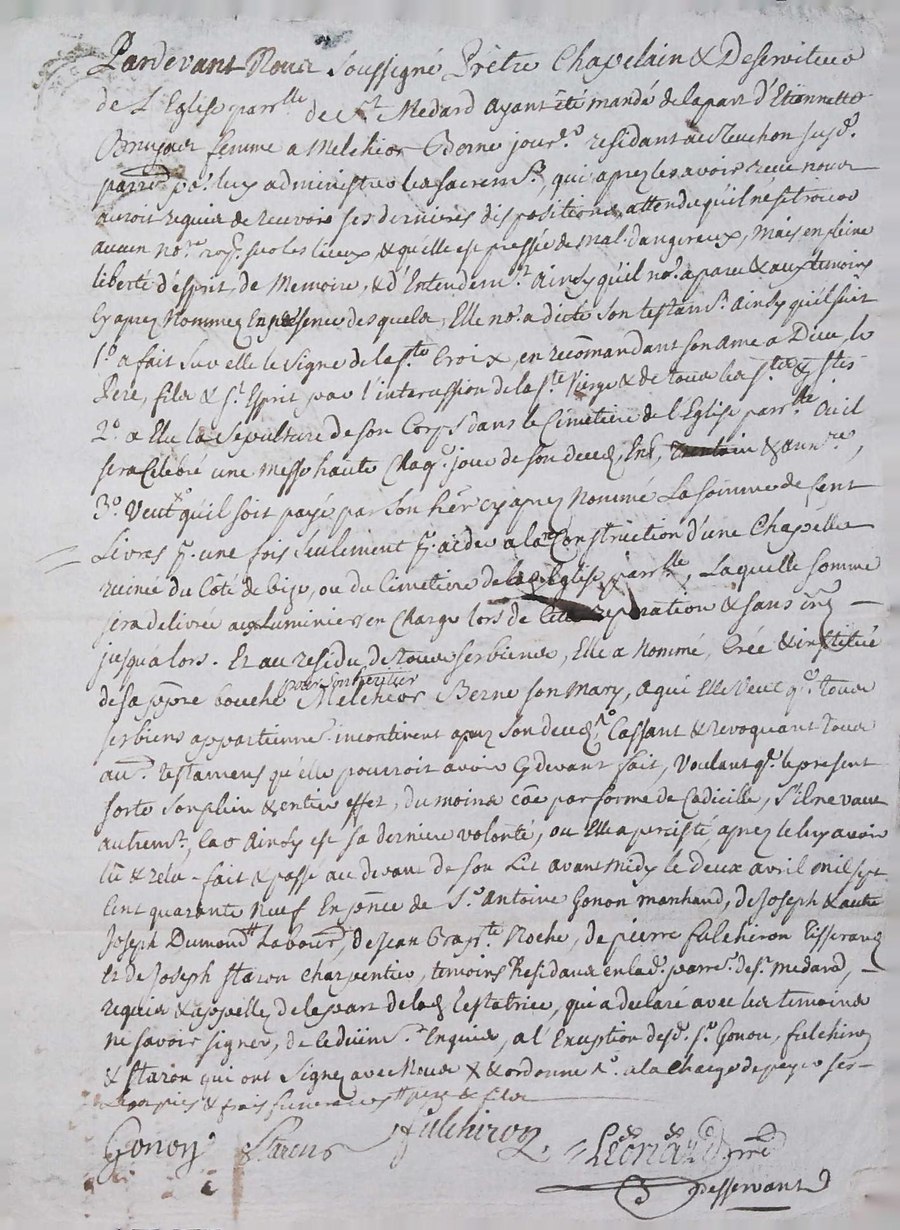 Pardevant Nous Soussigné Prêtre Chapelain & Desserviteur
de L'Eglise parr.lle de S.t Medard ayant été mandé de la part d'Etiennette
femme a Melchior Berne jour.r residant au susd.
parr.e po.r luy administrer les sacrem.ts qui aprez les avoir receu nous
auroit requis de recevoir ses dernieres dispositions, attendu qu'il ne se trouve
aucun no.re roy. sur les lieux & qu'elle est pressée de mal dangereux, mais en pleine
liberté d'esprit, de Memoire, & d'Entendem.t Ainsy qu'il no.s a paru & aux temoins
Cy aprez Nommez En presence desquels, Elle no.s a dicté Son testam.t Ainsy qu'il suit
1.o a fait sur elle le Signe de la s.te Croix, en recõmandant son ame a Dieu le
Pere, fils & s.t Esprit par l'intercession de la s.te Vierge & de tous les s.ts & s.tes
2.o a Elu la Sepulture de son Corps dans le Cimetiere de l'Eglise parr.lle Ou il
sera Celebré une Messe haute Chaq. jour de son decez, & ann.re,
3.o Veut qu'il soit payé par Son her. cy aprez Nommé La Somme de Cent
Livres p. une fois seulement p. aider a la Construction d'une Chapelle
ruinée du Côté de bize, ou du Cimetiere de la d. Eglise parr.lle, Laquelle somme
sera delivrée aux Luminiers en Charge lors de reparation & sans
jusqu'alors. Et au residu de tous ses biens, Elle a Nommé, Créé & institué
de sa ppre bouche pour son heritier Melchior Berne son Mary, a qui Elle Veut q. tous
ses biens appartienne incontinent aprez Son decez, Cassant & revoquant Tous
au. Testamens qu'elle pourroit avoir Cy devant fait, Voulant q. le present
sorte Son plein & entier effet, du moins cõe par forme de Codicille, S'il ne vaut
autrem.t, Car Ainsy est sa derniere volonté, ou Elle a percisté, aprez le luy avoir
lû & relu - fait & passé au devant de Son Lit avant midy le Deux avril mil sept
Cent quarante Neuf En pñce de S.r Antoine Gonon marchand, de Joseph & autre
Joseph Dumond Labour., de Jean Bapt.te Roche, de pierre fulchiron Tisserand
Et de Joseph Staron Charpentier, temoins Residans en la d. parr.e de S.t Medard,
requis & appellez de la part de la d. Testatrice, qui a declaré avec les temoins
ne Savoir signer, de ce düem.t Enquis, a l'Exception des d. s.r Gonon, fulchiron
& Staron qui ont Signez avec Nous a la Charge de payer ses
legs pies & frais funeraires
Gonon Staron fulchiron
desservant